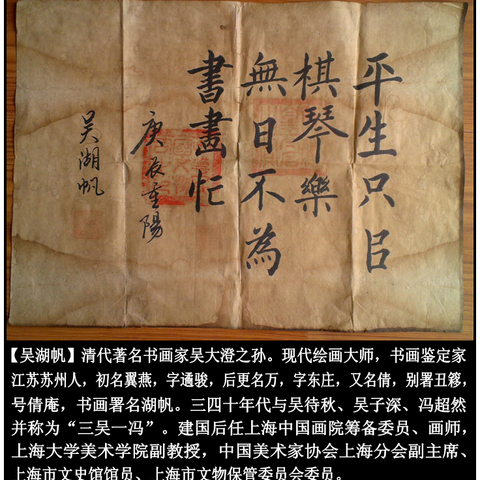 平生只㠯
棋琴樂
無日不為
書畫忙
庚辰重陽
吴湖帆
【吴湖帆】清代著名书画家吴大澄之孙。现代绘画大师，书画鉴定家
江苏苏州人，初名翼燕，字遹骏，后更名万，字东庄，又名倩，别署丑簃，
号倩庵，书画署名湖帆。三四十年代与吴待秋、吴子深、冯超然
并称为“三吴一冯”。建国后任上海中国画院筹备委员、画师，
上海大学美术学院副教授，中国美术家协会上海分会副主席、
上海市文史馆馆员、上海市文物保管委员会委员。